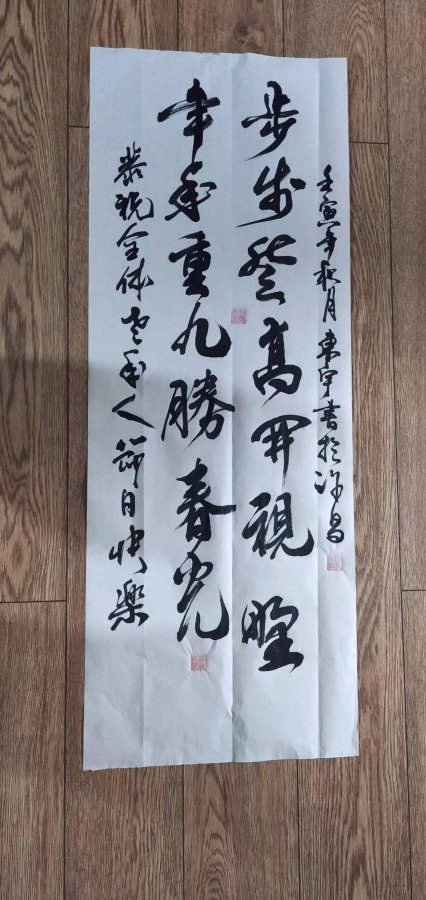 壬寅年秋月東宇書於许昌
步步登高開視野
年年重九勝春光
恭祝全体老年人節日快樂